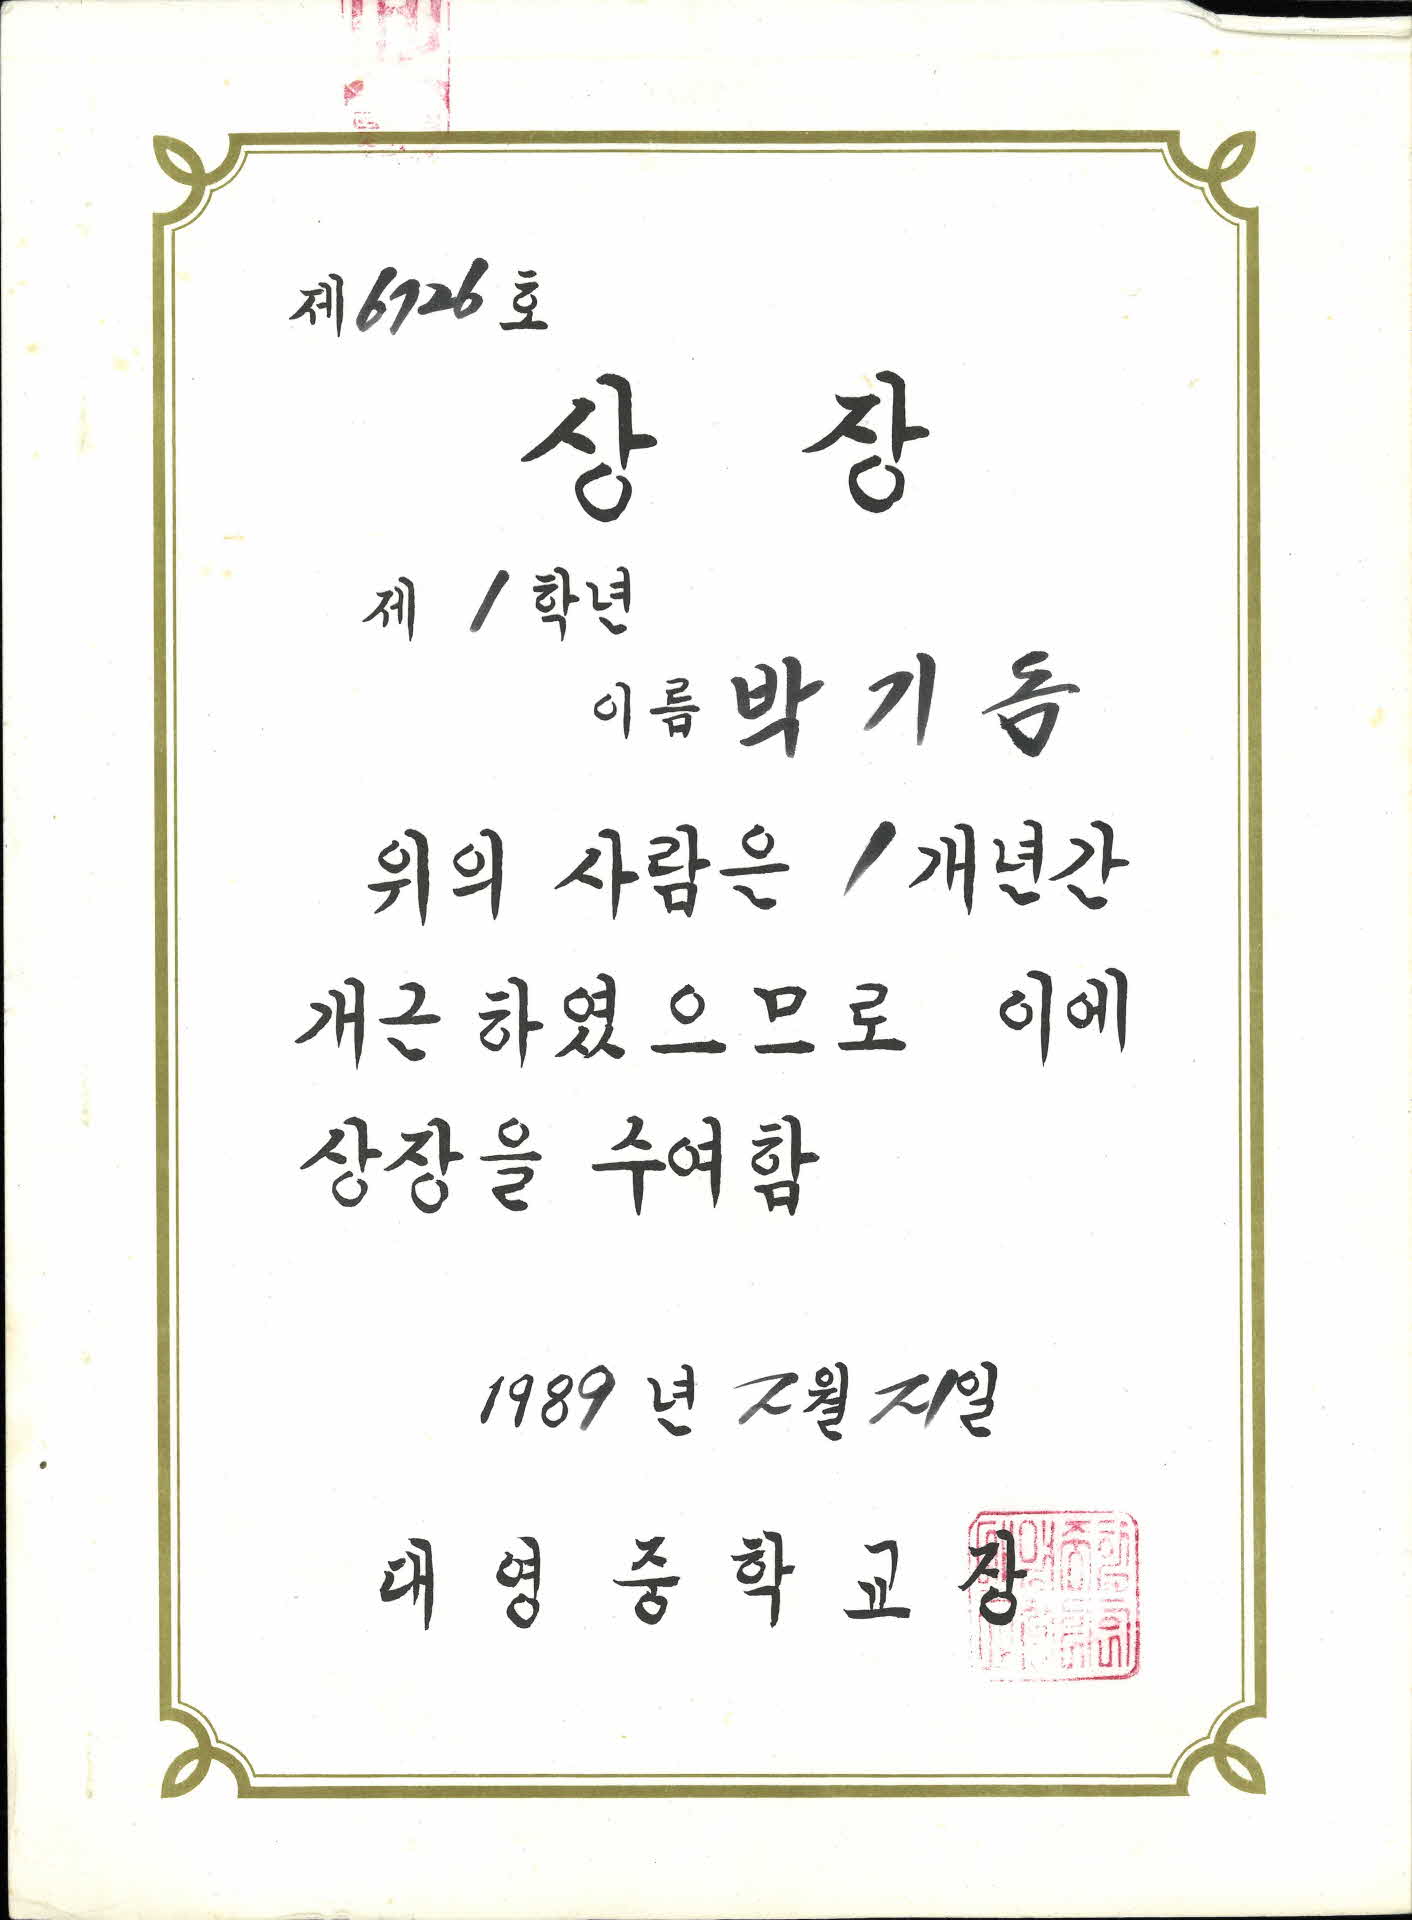 제6726호
상 장
제 1 학년
이름 박 기 동
위의 사람은 1개년간
개근 하였으므로 이에
상장을 수여함
1989년 2월 21일
대 영 중 학 교 장